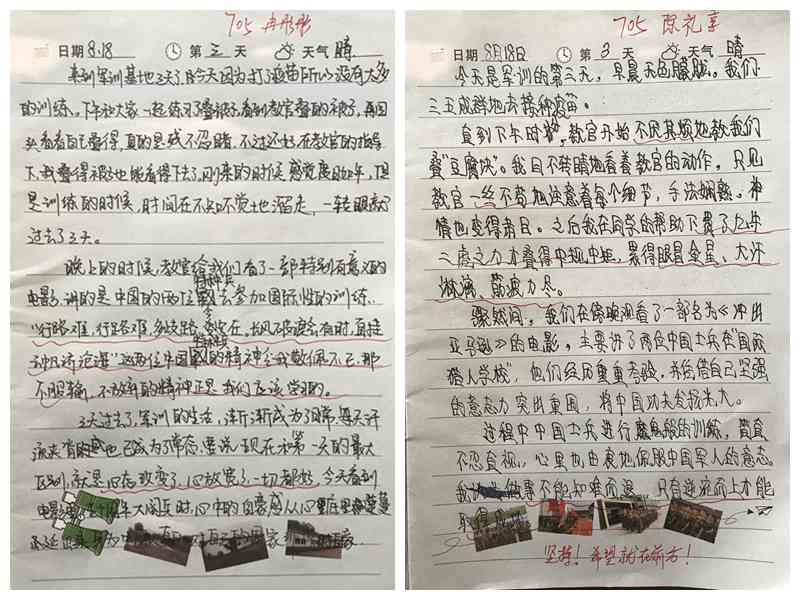 705 冉彤彤
日期 8.18 第 三 天 天气 晴
来到军训基地3天了,今天因为打了疫苗所以没有太多
的训练。下午和大家一起练习了叠被子看到教官叠的被子,再回
头看看自己叠得,真的是惨不忍睹。不过还好在教官的指导
下,我叠得被子也能看得下去了,刚来的时候感觉度日如年,但
是训练的时候,时间在不知不觉中溜走,一转眼就
过去了3天。
晚上的时候,教官给我们看了一部特别有意义的
电影,讲的是中国的两位特种兵去参加国际性的训练。
"行路难,行路难,多歧路,今安在。长风破浪会有时,直挂
云帆济沧海"这两位中国特种兵的精神令我敬佩不已,那
不服输,不放弃的精神正是我们应该学习的。
3天过去了,军训的生活,渐渐成为了日常,每天汗
流浃背的感也已成为了常态,要说现在和第一天的最大
区别,就是心态改变了,心放宽了,一切都好。今天看到
电影 大阅兵时,心中的自豪感从心里
705 陈礼享
日期 8月18日 第 3 天 天气 晴
今天是军训的第三天,早晨天色朦胧。我们
三五成群地去接种疫苗。
直到下午时,教官开始不厌其烦地教我们
叠"豆腐块"。我目不转睛地看着教官的动作,只见
教官一丝不苟地注意着每个细节,手法娴熟。神
情也变得肃目。之后我在同学的帮助下费了九牛
二虎之力才叠得中规中矩,累得眼冒金星、大汗
淋漓,筋疲力尽。
骤然间,我们在傍晚观看了一部名为《冲出
亚马逊》的电影,主要讲了两兵中国士兵在"国际
猎人学校",他们经历重重考验,并凭借自己坚强
的意志力突出重围,将中国功夫发扬光大。
过程中中国士兵进行魔鬼般的训练,简直
不忍直视,心里也由衷地佩服中国军人的意志。
做事不能知难而退,只有迎难而上才能
取得
坚持!希望就在前方!